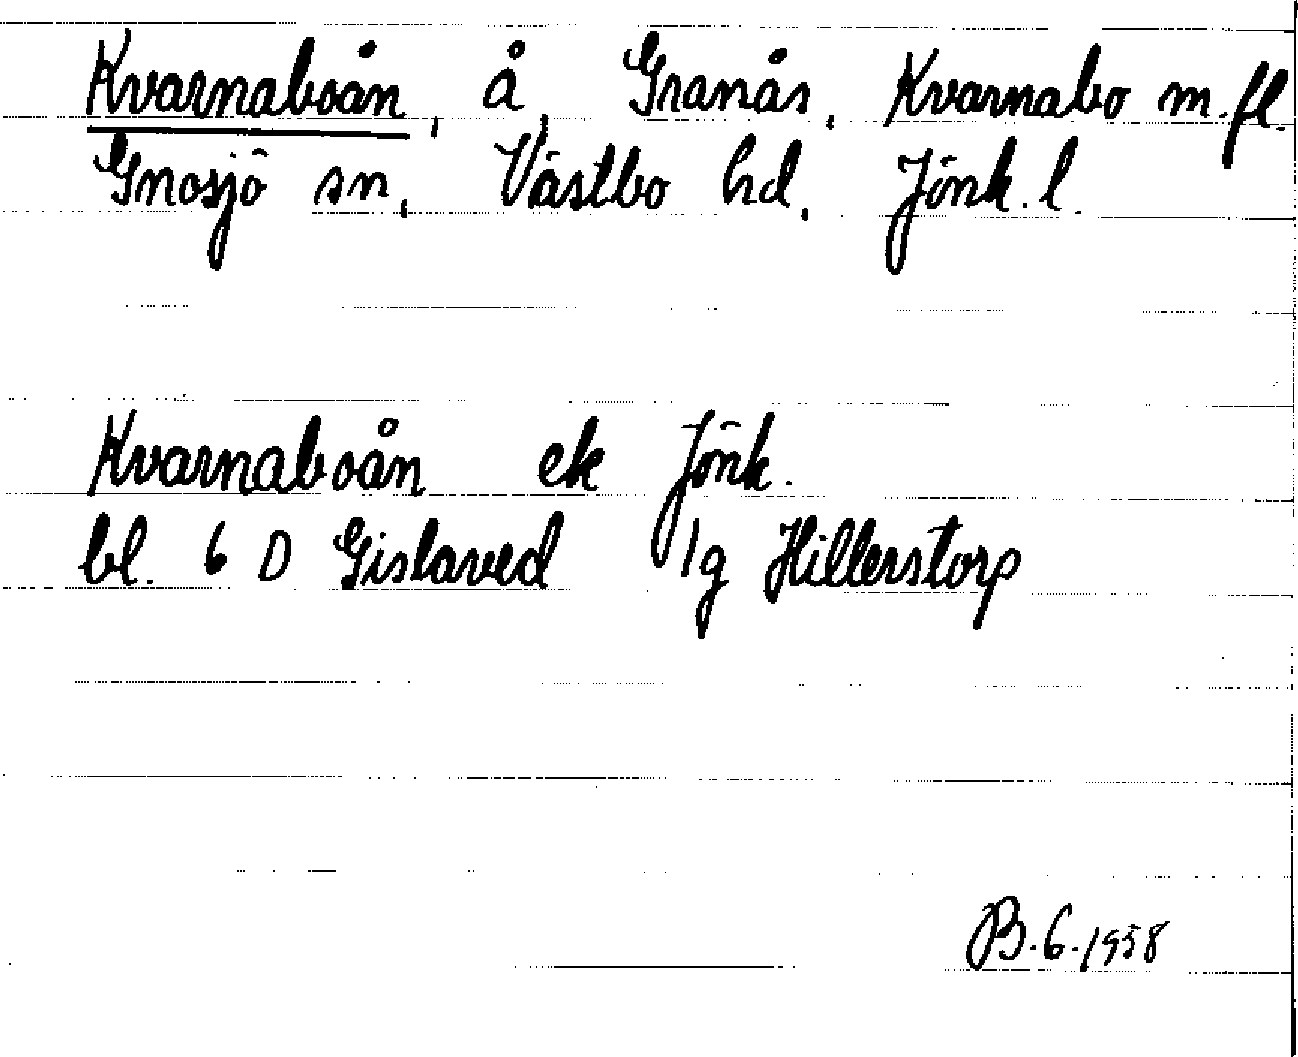 Kvarnaboån, å, Granås, Kvarnabo m.fl.
Gnosjö sn, Västbo hd, Jönk. l.
Kvarnaboån ek Jönk.
bl. 6 D Gislaved 1g Hillerstorp
B.6.1958